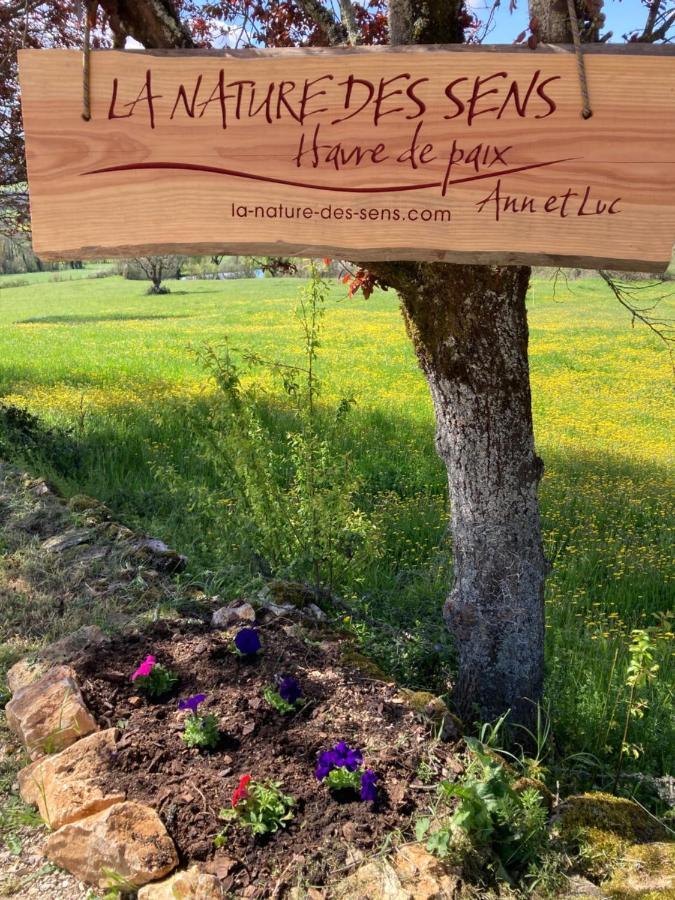 LA NATURE DES SENS
Havre de paix
la-nature-des-sens.com
Ann et Luc